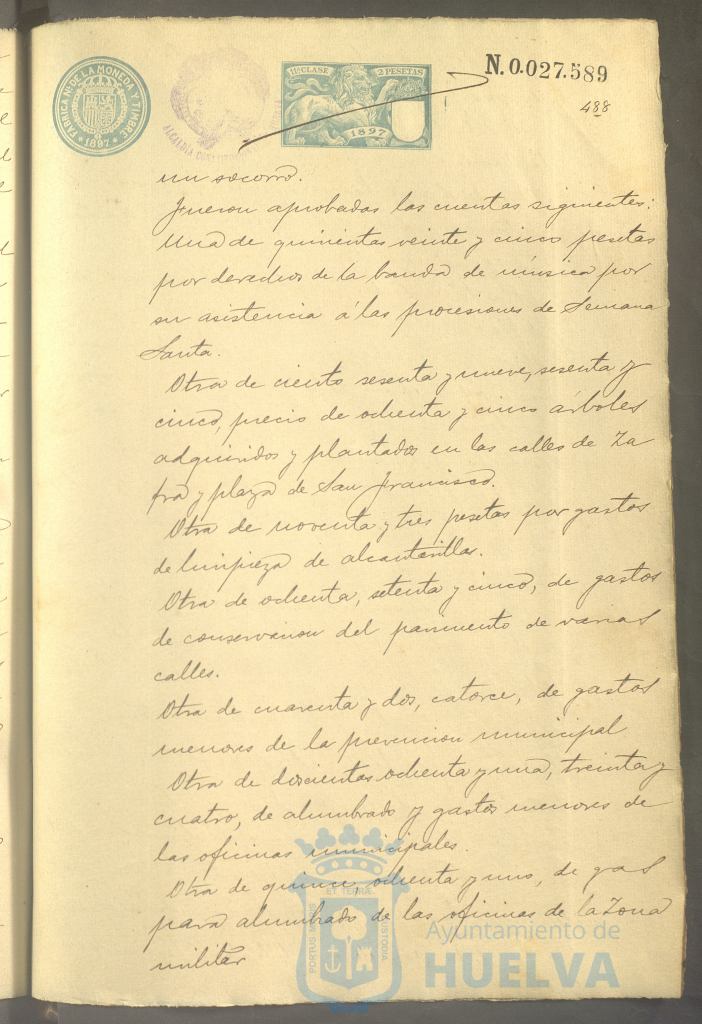 FÁBRICA Nal. DE LA MONEDA Y TIMBRE
* 1897 *
ALCALDIA
11ª CLASE 2 PESETAS
1897
N.0.027.589
488
un socorro.
Fueron aprobadas las cuentas siguientes:
Una de quinientas veinte y cinco pesetas
por derechos de la banda de música por
su asistencia á las procesiones de Semana
Santa.
Otra de ciento sesenta y nueve, sesenta y
cinco, precio de ochenta y cinco árboles
adquiridos y plantados en las calles de Za
fra y plaza de San Francisco.
Otra de noventa y tres pesetas por gastos
de limpieza de alcantarillas.
Otra de ochenta, setenta y cinco, de gastos
de conservacion del pavimento de varias
calles.
Otra de cuarenta y dos, catorce, de gastos
menores de la prevencion municipal
Otra de doscientas ochenta y una, treinta y
cuatro, de alumbrado y gastos menores de
las oficinas municipales.
Otra de quince, ochenta y uno, de gas
para alumbrado de las oficinas de la Zona
militar
PORTUS MARIS ET TERRÆ CUSTODIA
Ayuntamiento de
HUELVA